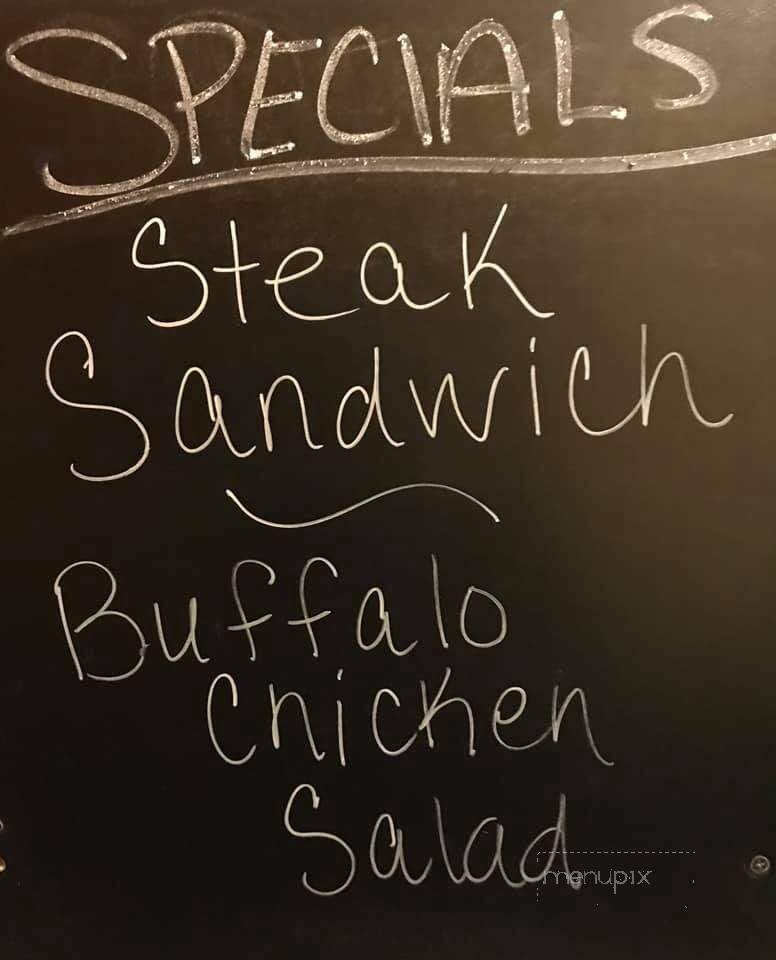 SPECIALS
Steak
Sandwich
Buffalo
Chicken
Salad
menupix